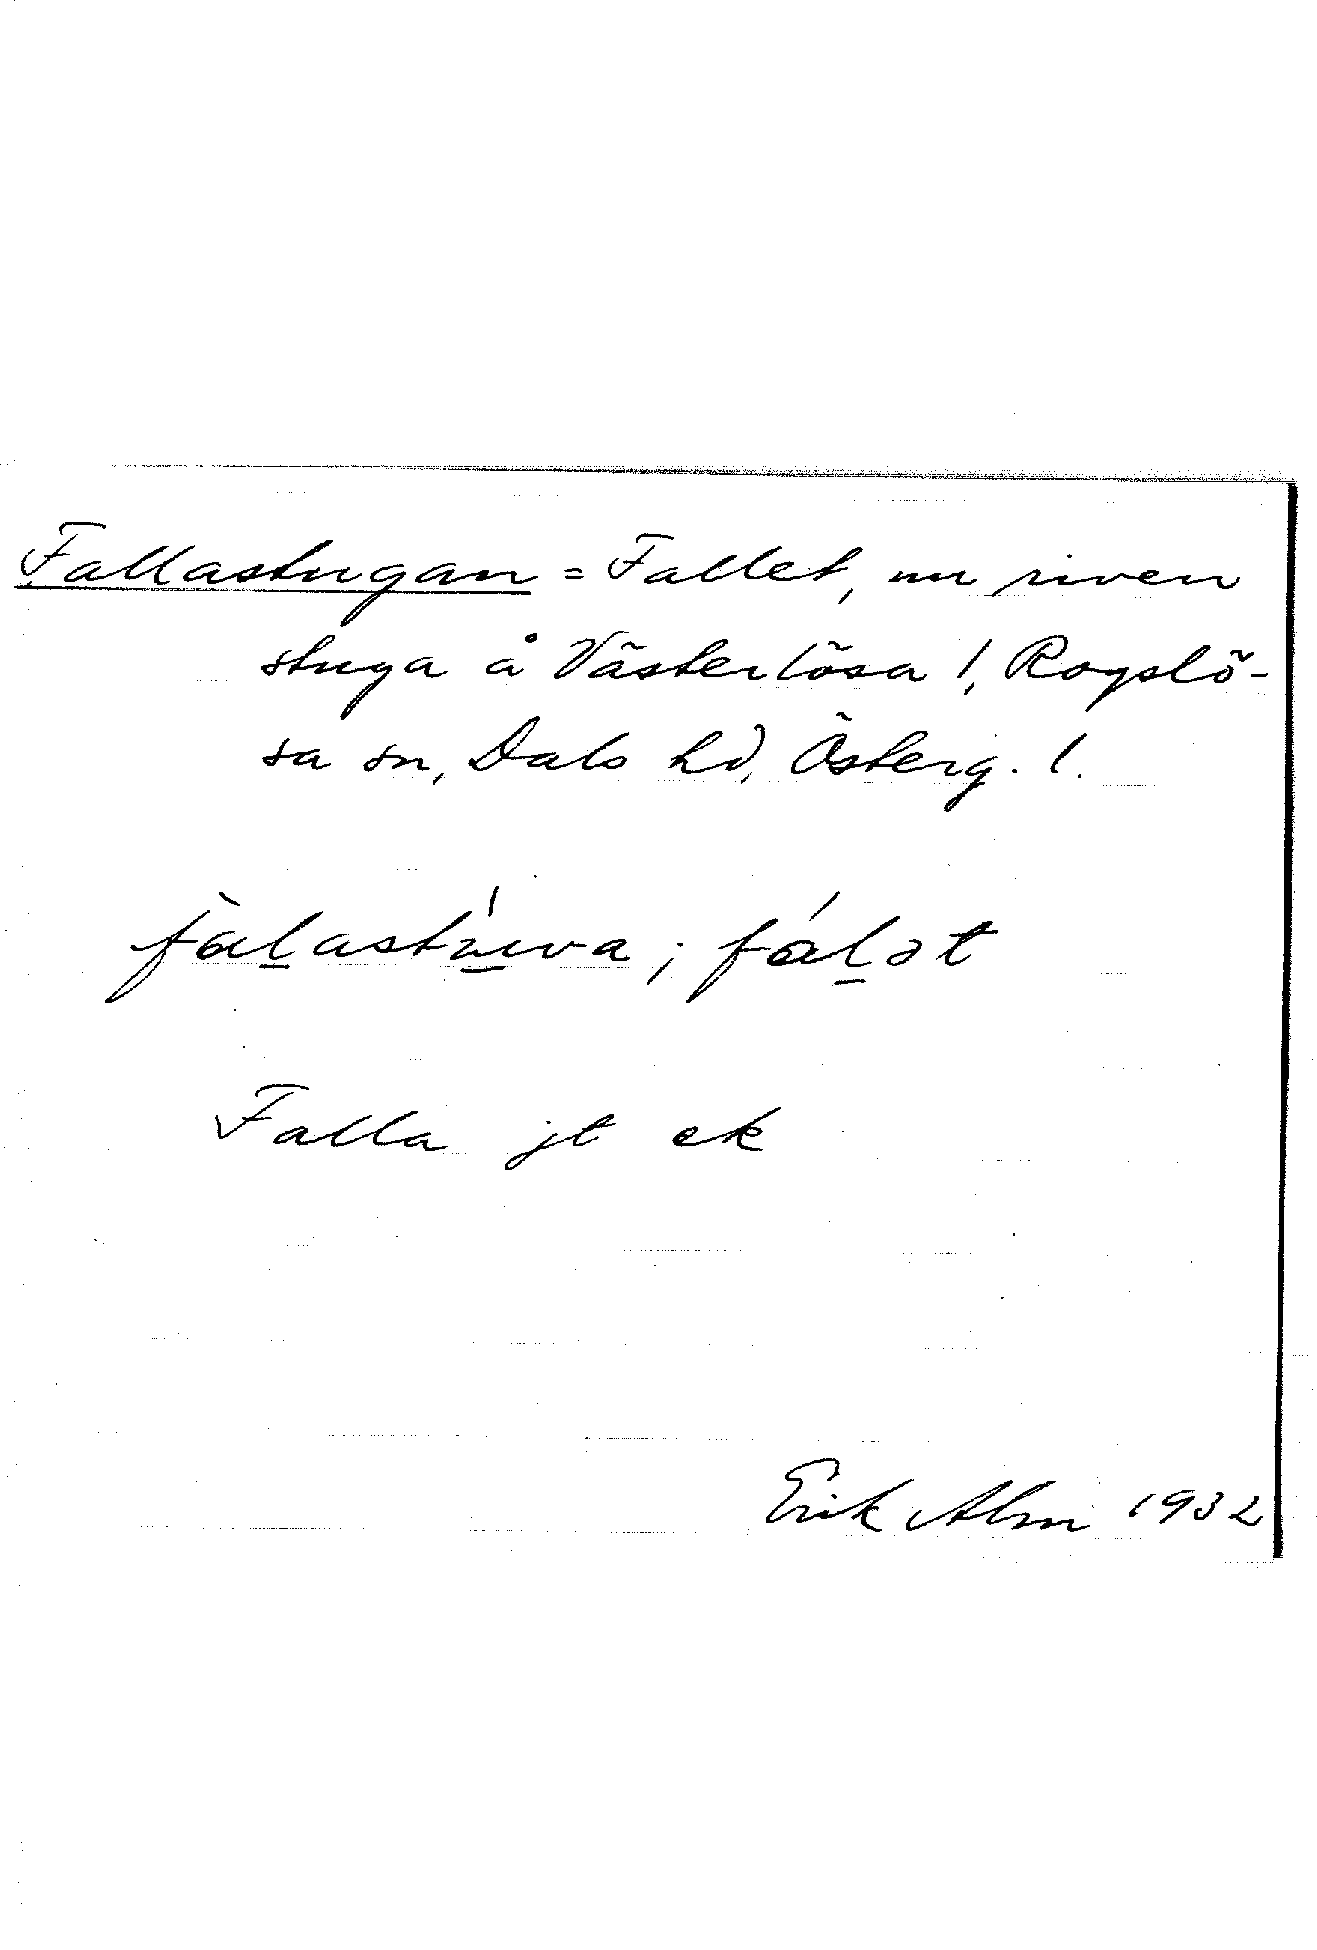 Fallastugan = Fallet, nu riven
stuga å Västerlösa !, Rogslö-
sa sn, Dals hd, Österg. l.
fàl̲astú̲wa ; fál̲ət
Falla jt ek
Erik Alm 1932